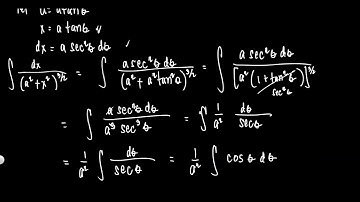 let u = a tan θ
x = a tan θ
dx = a sec²θ dθ ✓
∫ dx/(a² + x²)^(3/2) = ∫ a sec²θ dθ/(a² + a² tan²θ)^(3/2) = ∫ a sec²θ dθ/[a² (1 + tan²θ)]^(3/2) sec²θ
= ∫ a sec²θ dθ/(a³ sec³θ) = ∫ 1/a² dθ/secθ
= 1/a² ∫ dθ/secθ = 1/a² ∫ cos θ dθ